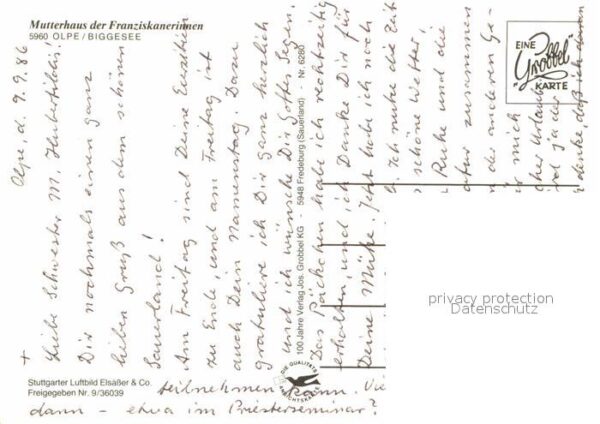 Mutterhaus der Franziskanerinnen
5960 OLPE / BIGGESEE
EINE
"Grobbel"
KARTE
Olpe, d. 9.9.86
+
Liebe Schwester M. Hubertildis!
Dir nochmals einen ganz
lieben Gruß aus dem schönen
Sauerland!
Am Freitag sind Deine Exerzitien
zu Ende und am Freitag ist
auch Dein Namenstag. Dazu
gratuliere ich Dir ganz herzlich
und ich wünsche Dir Gottes Segen.
Das Päckchen habe ich rechtzeitig
erhalten und ich Danke Dir für
Deine Mühe. Jetzt habe ich noch
Ich nutze die Zeit
schöne Wetter!
Ruhe und die
atur zusammen
der anderen Ge-
mich
Urlaub
denke, daß ich daran
teilnehmen kann. Vie
dann – etwa im Priesterseminar?
100 Jahre Verlag Jos. Grobbel KG - 5948 Fredeburg (Sauerland) - Nr. 6280
Stuttgarter Luftbild Elsäßer & Co.
Freigegeben Nr. 9/36039
DIE QUALITÄTS
ANSICHTSKARTE
privacy protection
Datenschutz